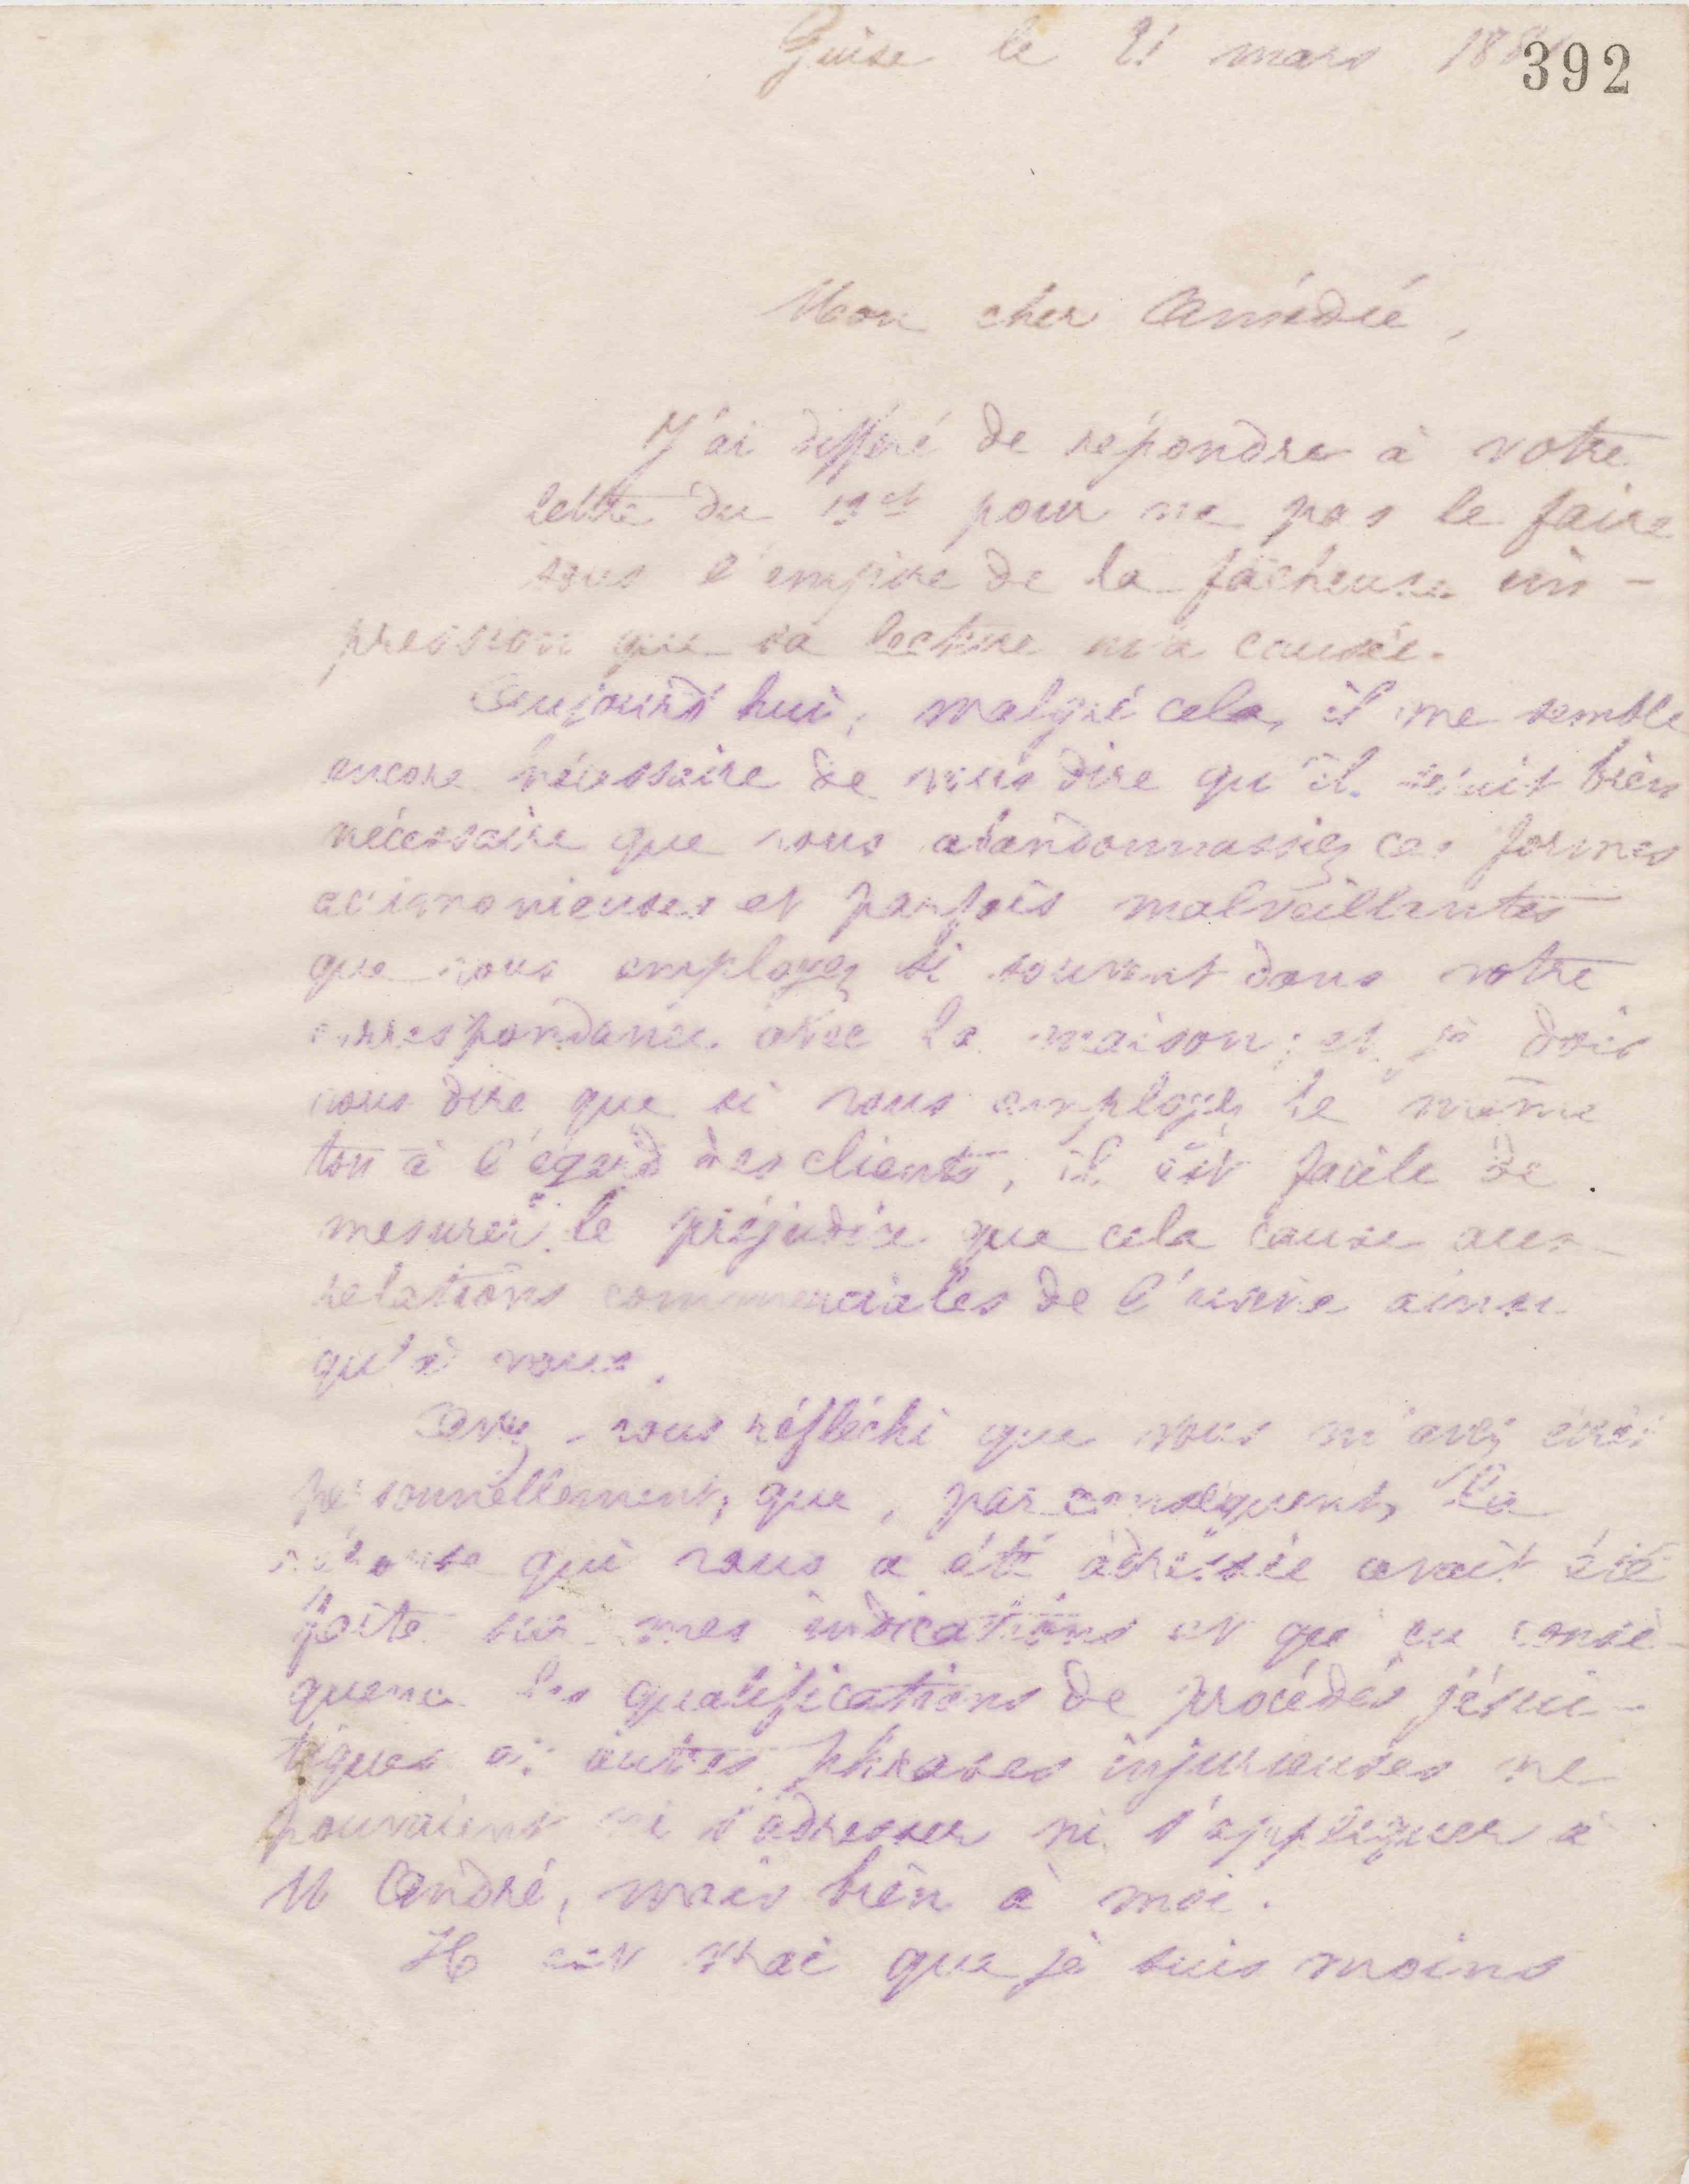 Guise le 21 mars 188
392
Mon cher Amédée,
J'ai différé de répondre à votre
lettre du 12 ct pour ne pas le faire
sous l'empire de la fâcheuse im-
pression que sa lecture m'a causée.
Aujourd'hui, malgré cela, il me semble
encore nécessaire de vous dire qu'il serait bien
nécessaire que vous abandonnassiez ces formes
acrimonieuses et parfois malveillantes
que vous employez si souvent dans votre
correspondance avec la maison; et je dois
vous dire que si vous employez le même
ton à l'égard des clients, il est facile de
mesurer le préjudice que cela cause aux
relations commerciales de l'usine ainsi
qu'à vous.
Avez-vous réfléchi que vous m'avez écrit
personnellement, que, par conséquent, la
réponse qui vous a été adressée avait été
faite sur mes indications et que en consé-
quence les qualifications de procédés jésui-
tiques et autres phrases injurieuses ne
pouvaient ni s'adresser ni s'appliquer à
M André, mais bien à moi.
Il est vrai que je suis moins